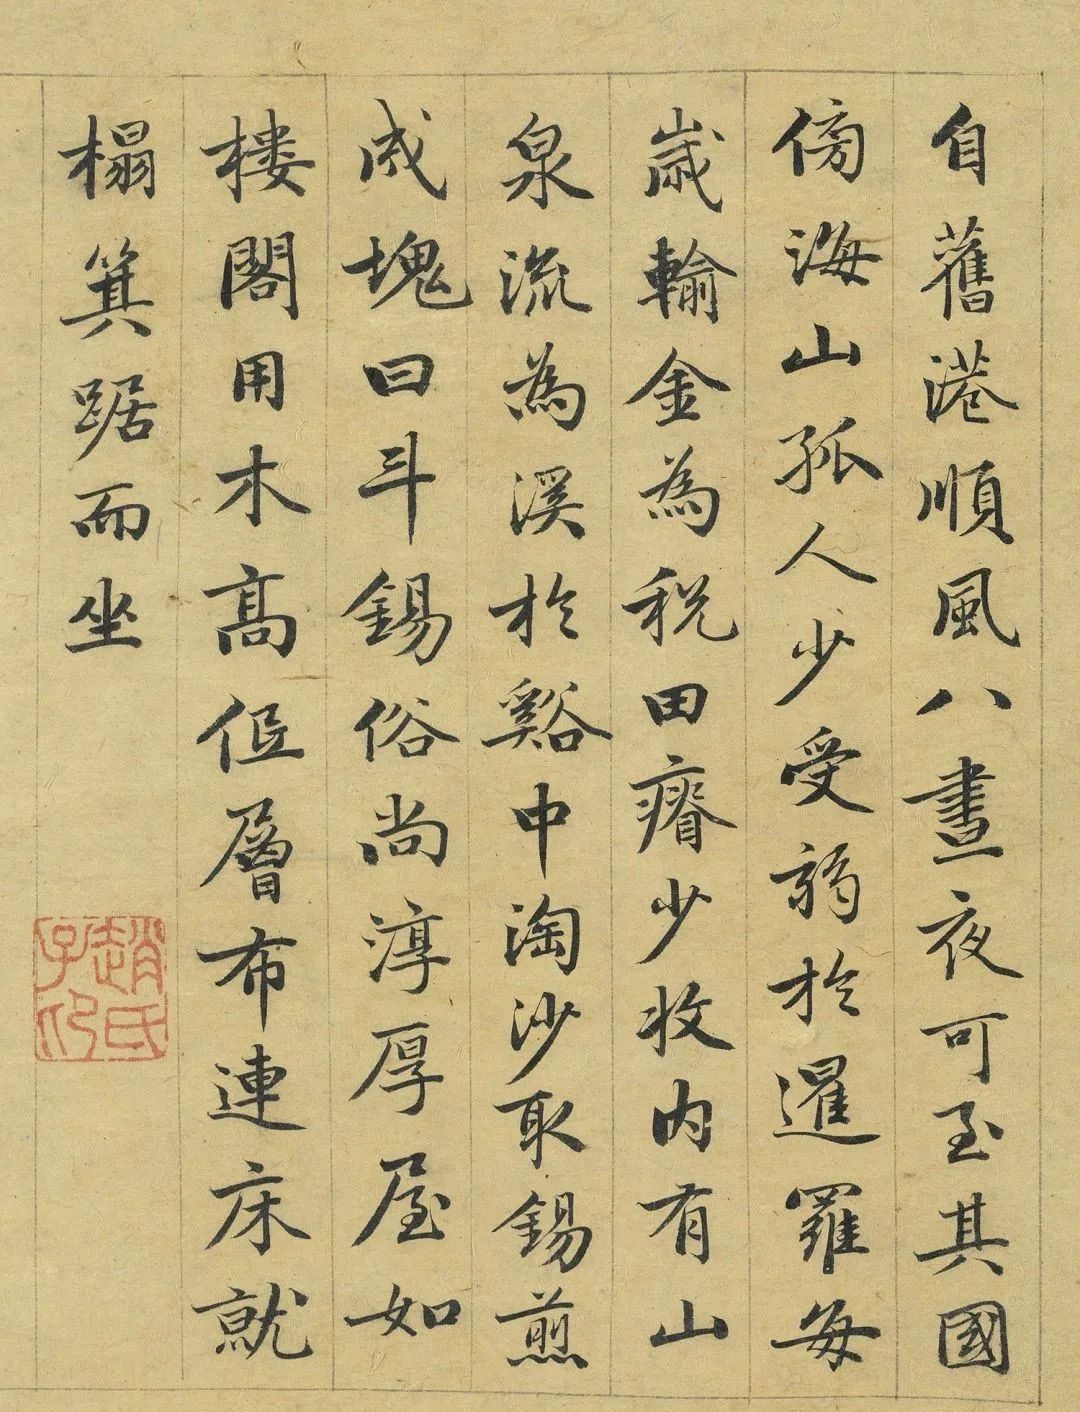 自舊港順風八晝夜可至其國
傍海山孤人少受弱於暹羅每
歲輸金為稅田瘠少收內有山
泉流為溪於谿中淘沙取錫煎
成塊曰斗錫俗尚淳厚屋如
樓閣用木高低層布連床就
榻箕踞而坐
趙氏子印